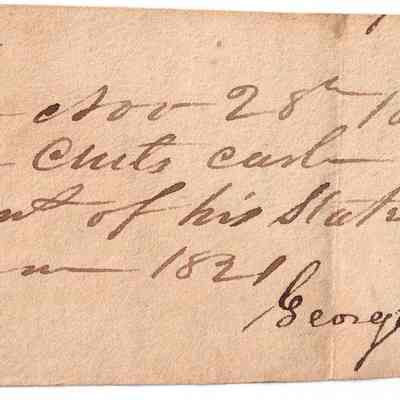 Nov 28th 18
Cents cash
nt of his Stat
1821
George